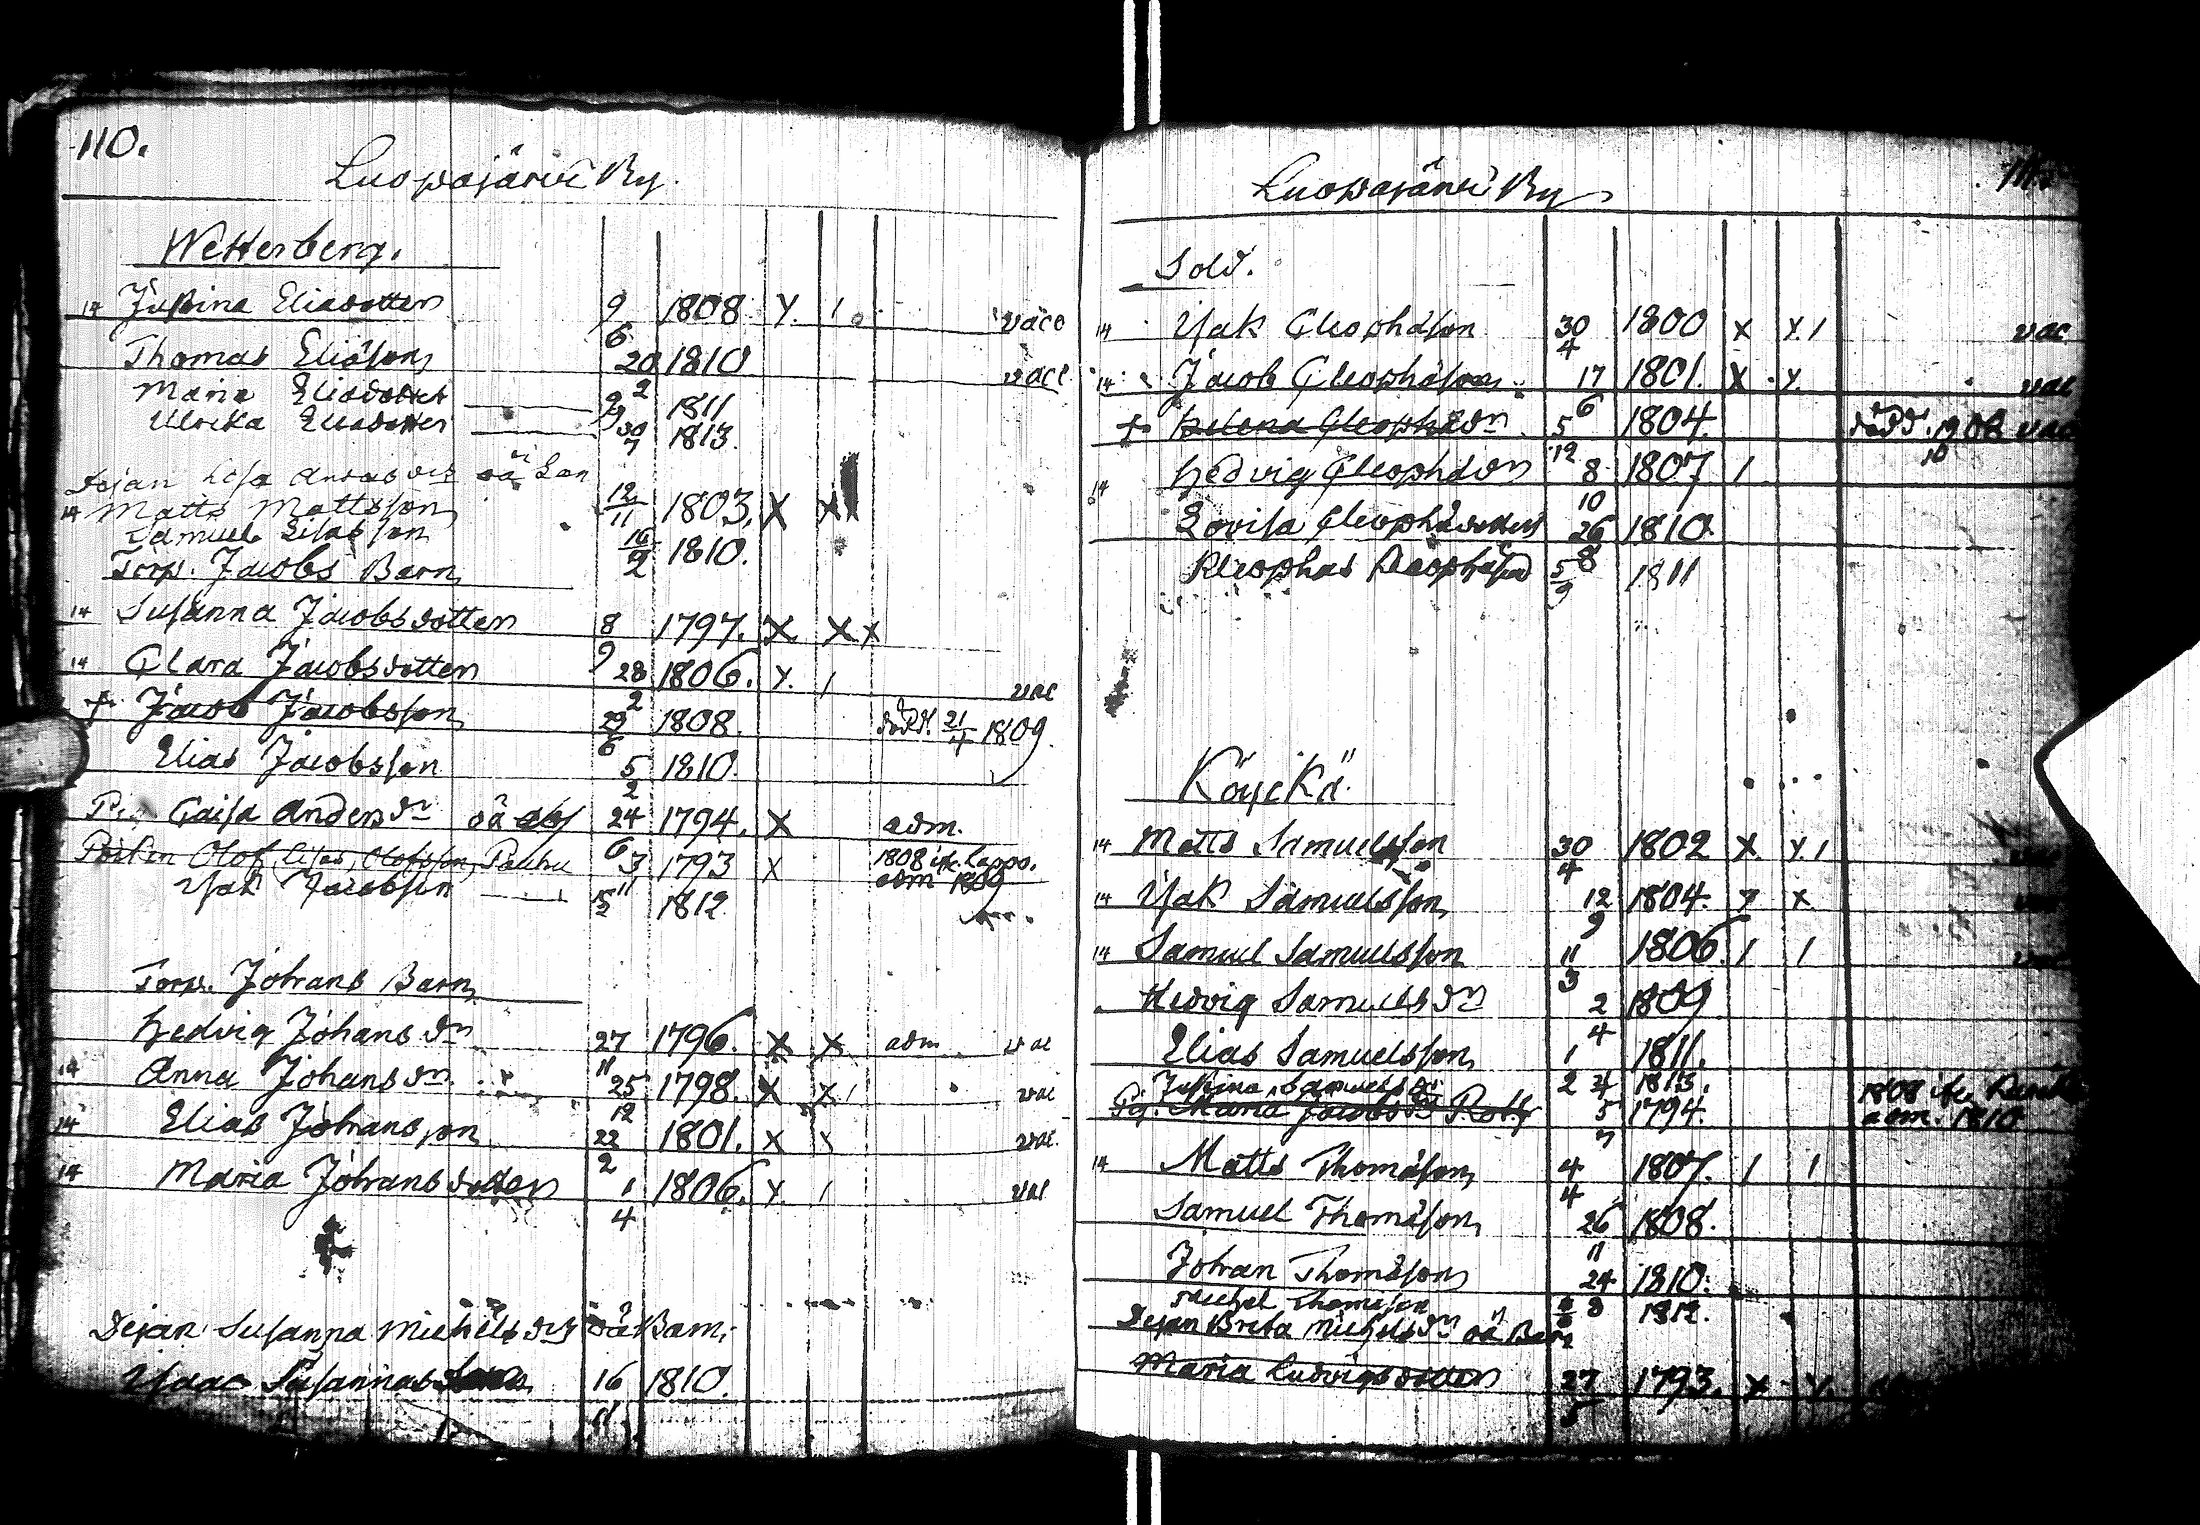 110.
Luopajärvi By.
Wetterberg.
14 Justina Eliadotter 9/6 1808 x. 1 vacc
Thomas Eliason 20/2 1810 vacc
Maria Eliadotter 9/9 1811
Ulrika Eliadotter 30/7 1813.
Dejan Lisa Andersdr oä Son
14 Matts Mattsson 12/11 1803. X X
Samuel Lisasson 16/2 1810.
Torp. Jacobs Barn
14 Susanna Jacobsdotter 8/9 1797. X. X x
14 Clara Jacobsdotter 28/2 1806. x. 1 vac
+ Jacob Jacobsson 29/6 1808. död. 21/4 1809.
Elias Jacobsson 5/2 1810.
Caisa Andersdr oä 24/6 1794. X adm.
Olof Olofsson 3/11 1793 x 1808 ifr. Lappo.
adm 1809
Isak Jacobsson 5/2 1812
Torp. Johans Barn
Hedvig Johansdr 27/11 1796. X X adm vac
14 Anna Johansdr. 25/12 1798. X X 1 vac
14 Elias Johansson 22/2 1801. X X vac.
14 Maria Johansdotter 1/4 1806. x. 1 vac
Dejan Susanna Michelsdr oä Barn.
Isaac Susannas 16/11 1810.
Luopajärvi By
Sold.
14 Isak Cleophason 30/4 1800 x x. 1 vac
14 Jacob Cleophason 17/6 1801. X x. vac
+ Helena Cleophadr 5/12 1804. död vac
14 Hedvig Cleophadr 8/10 1807. 1
Lovisa Cleophadotter 26/8 1810.
Kleophas Cleophason 5/9 1811
Köyckä.
14 Matts Samuelsson 30/4 1802 X x. 1
14 Isak Samuelsson 12/9 1804. x x.
14 Samuel Samuelsson 11/3 1806. 1 1
Hedvig Samuelsdr 2/4 1809
Elias Samuelsson 1 1811.
Justina Samuelsdr 1813.
Pig. Maria Jacobsdr 5/7 1794. 1808 ifr.
adm. 1810
14 Matts Thomason 4/4 1807. 1 1
Samuel Thomason 26/11 1808.
Johan Thomason 24 1810.
Michel Thomason 1812.
Dejan Brita Michelsdr oä Barn
Maria Ludvigsdotter 27/5 1793. x x.